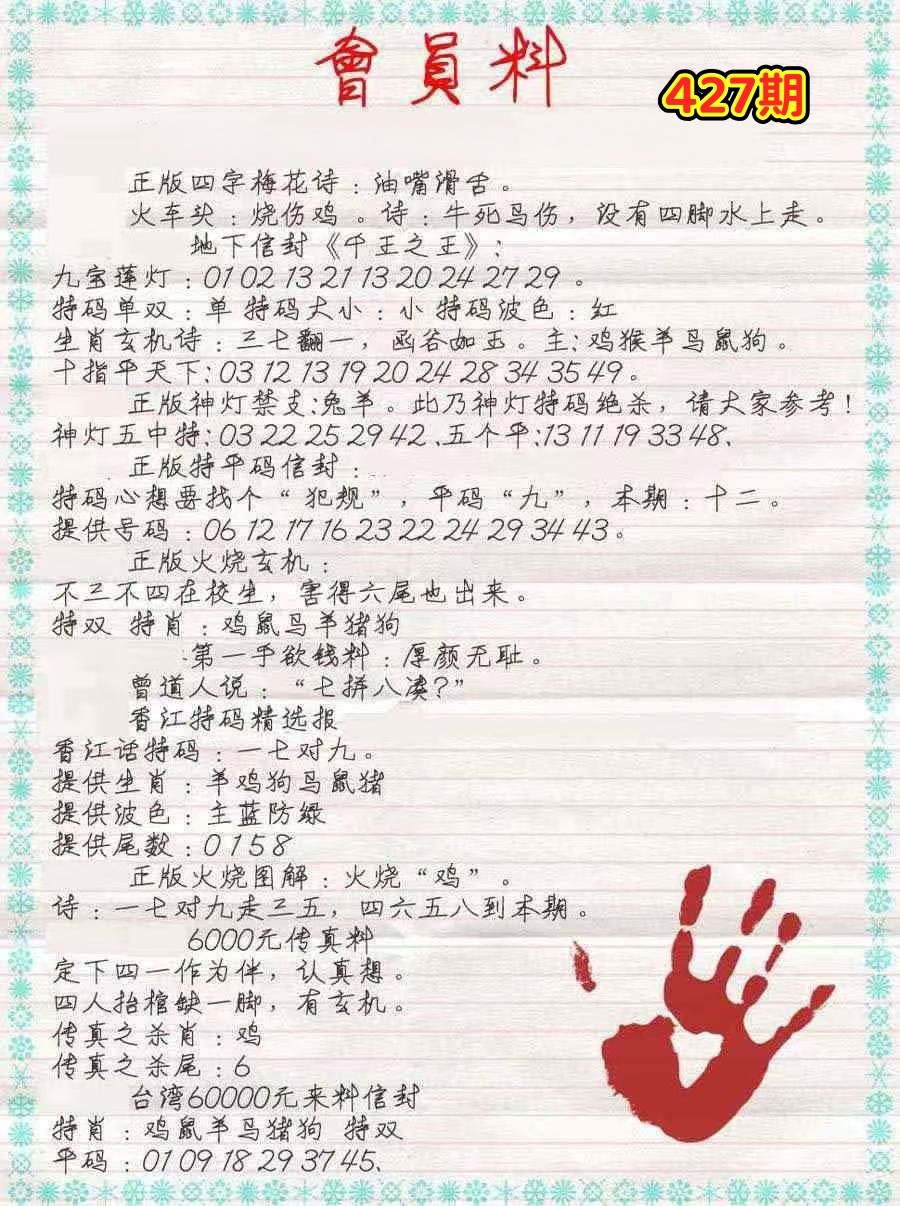 會員料
427期
正版四字梅花诗：油嘴滑舌。
火车头：烧伤鸡。诗：牛死鸟伤，没有四脚水上走。
地下信封《千王之王》：
九宝莲灯：01 02 13 21 13 20 24 27 29 。
特码单双：单 特码大小：小 特码波色：红
生肖玄机诗：三七翻一，函谷如玉。主：鸡猴羊马鼠狗。
十指平天下：03 12 13 19 20 24 28 34 35 49。
正版神灯禁支：兔羊。此乃神灯特码绝杀，请大家参考！
神灯五中特：03 22 25 29 42、五个平：13 11 19 33 48、
正版特平码信封：
特码心想要找个“犯规”，平码“九”，本期：十二。
提供号码：06 12 17 16 23 22 24 29 34 43。
正版火烧玄机：
不三不四在校生，害得六尾也出来。
特双 特肖：鸡鼠马羊猪狗
·第一手欲钱料：厚颜无耻。
曾道人说：“七拼八凑？”
香江特码精选报
香江话特码：一七对九。
提供生肖：羊鸡狗马鼠猪
提供波色：主蓝防绿
提供尾数：0 1 5 8
正版火烧图解：火烧“鸡”。
诗：一七对九走三五，四六五八到本期。
6000元传真料
定下四一作为伴，认真想。
四人抬棺缺一脚，有玄机。
传真之杀肖：鸡
传真之杀尾：6
台湾60000元来料信封
特肖：鸡鼠羊马猪狗 特双
平码：01 09 18 29 37 45、